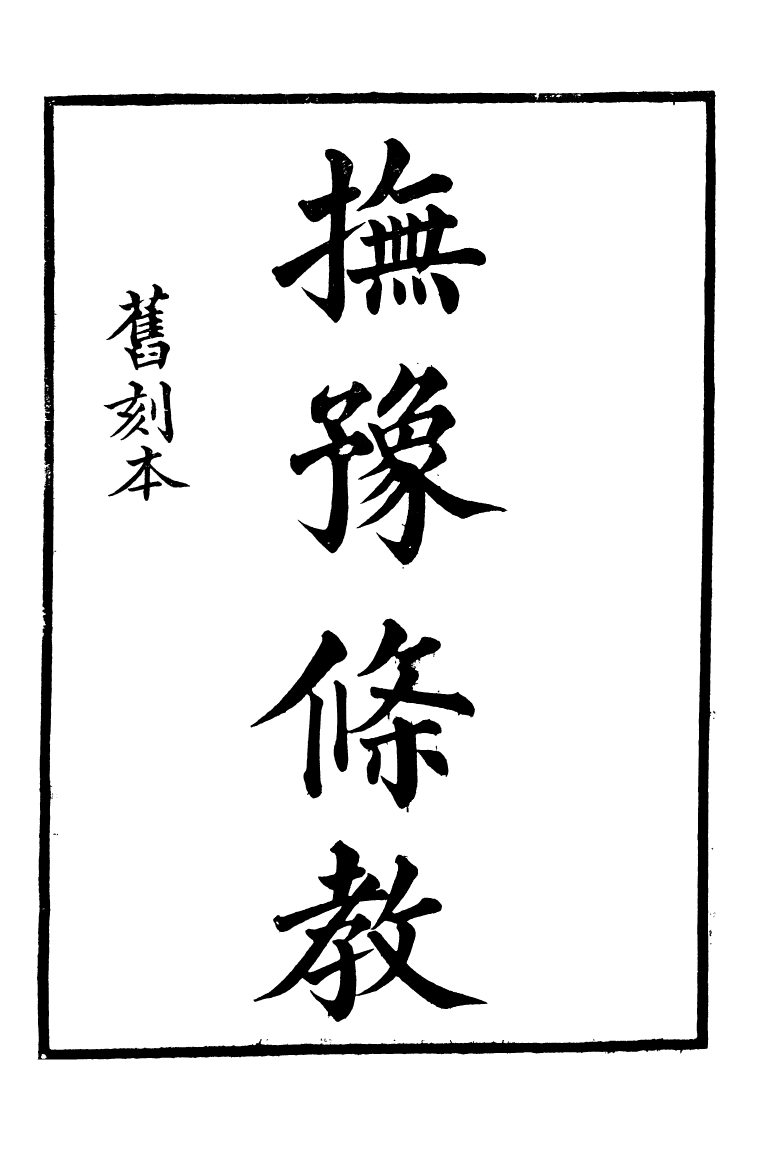 撫豫條教
舊刻本